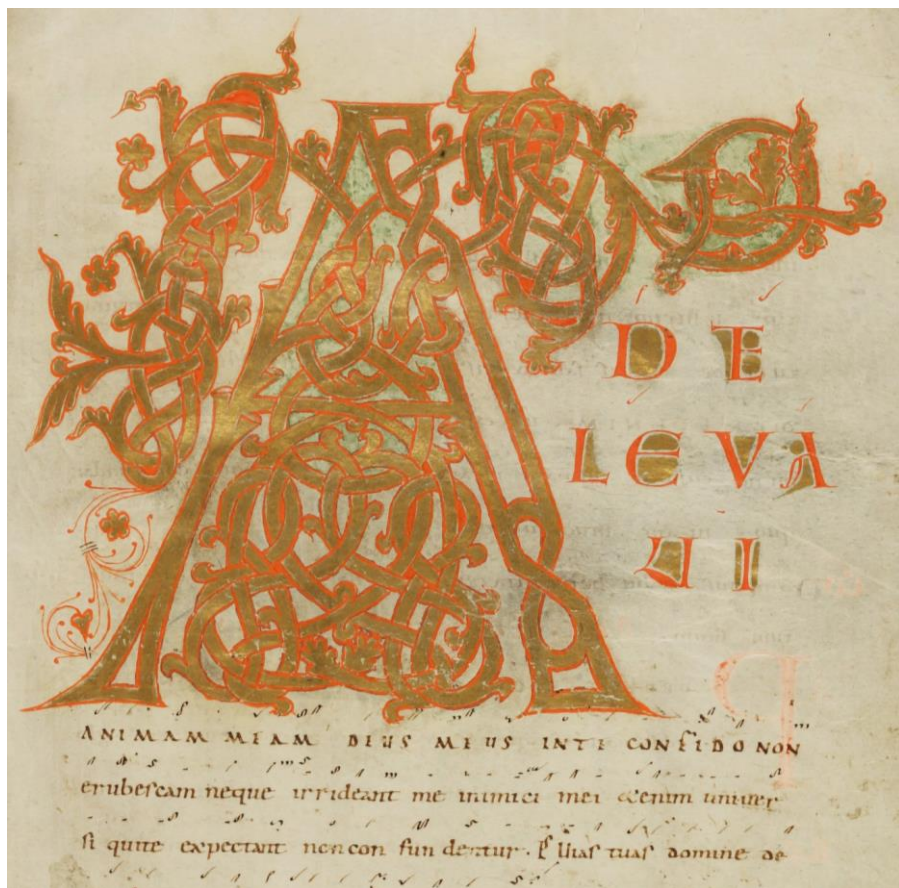 A
D E
LEVA
VI
ANIMAM MEAM DEUS MEUS INTE CONFIDO NON
erubescam neque irrideant me inimici mei etenim univer
si quite expectant noncon fun dentur. PS Uias tuas domine de